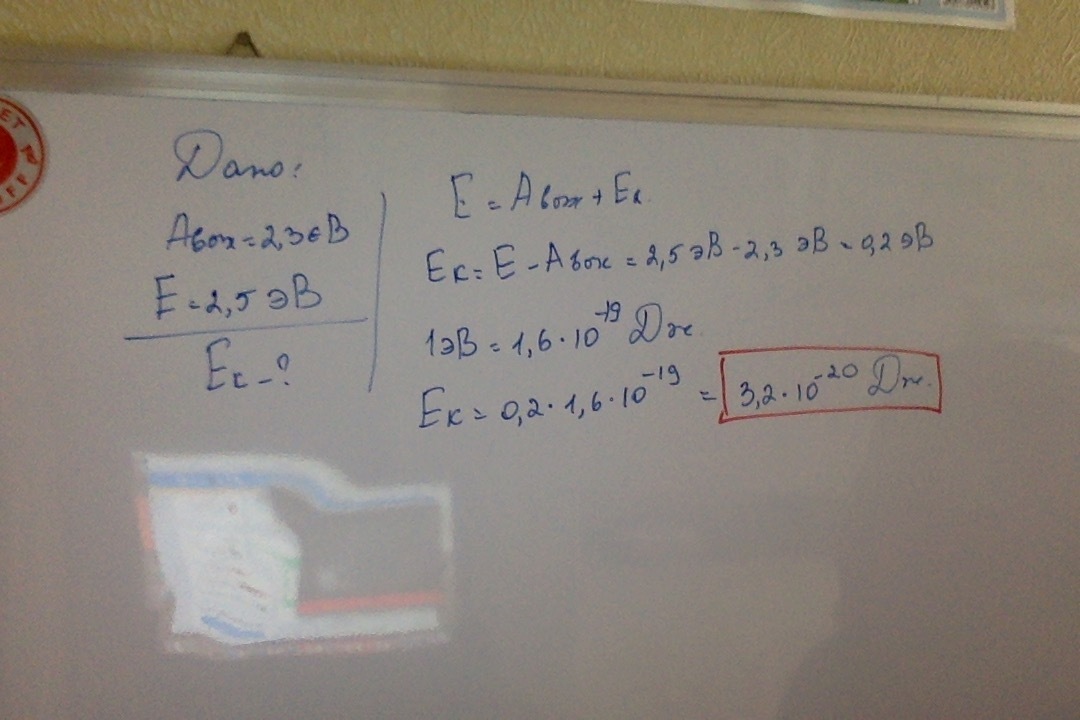 Дано:
Aвых = 2,3 эВ
E = 2,5 эВ
Eк - ?
E = Aвых + Eк
Eк = E - Aвых = 2,5 эВ - 2,3 эВ = 0,2 эВ
1 эВ = 1,6 · 10⁻¹⁹ Дж
Eк = 0,2 · 1,6 · 10⁻¹⁹ = 3,2 · 10⁻²⁰ Дж.